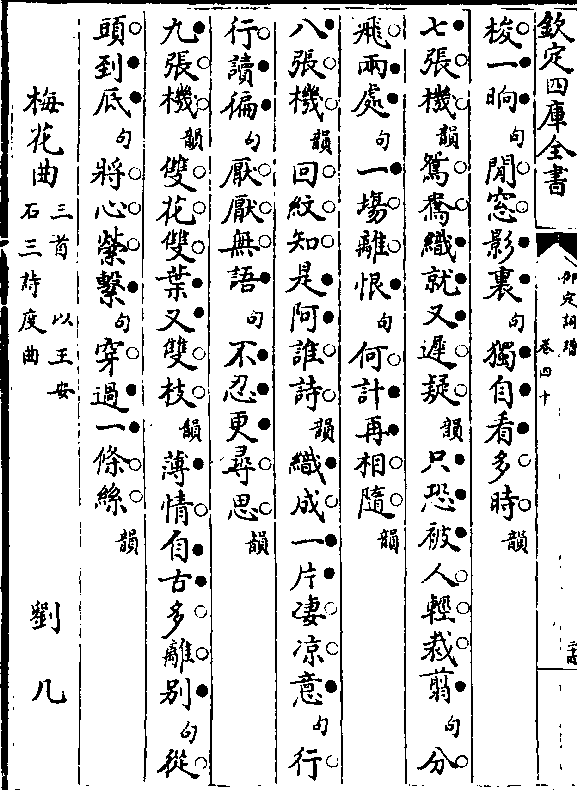 欽定四庫全書
御定詞譜
卷四十
梭一晌句閒窓影裏句獨自看多時韻
七張機韻鴛鴦織就又遲疑韻只恐被人輕裁翦句分
飛兩處句一場離恨句何計再相隨韻
八張機韻回紋知是阿誰詩韻織成一片凄凉意句行
行讀徧句厭厭無語句不忍更尋思韻
九張機韻雙花雙葉又雙枝韻薄情自古多離别句從
頭到底句將心縈繫句穿過一條絲韻
梅花曲三首 以王安
石三詩度曲
劉几